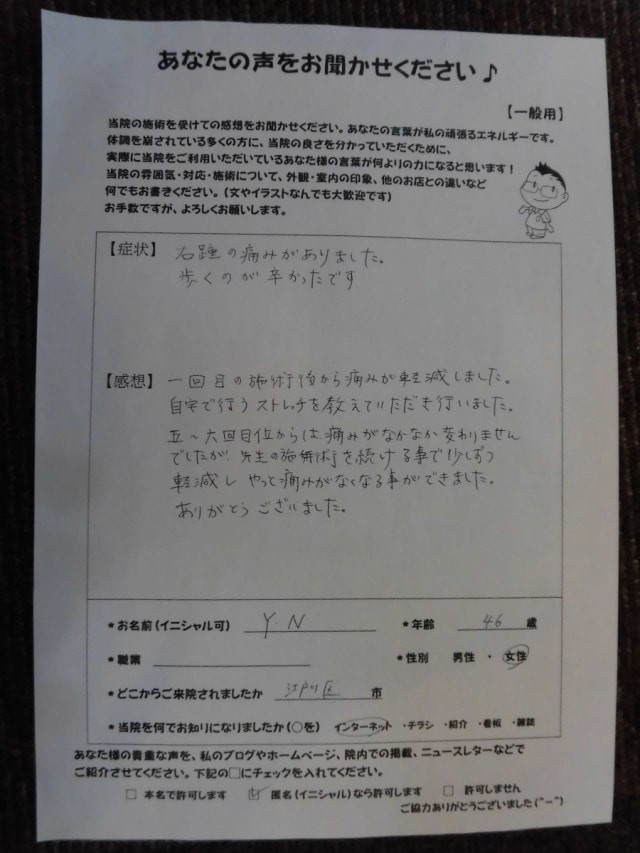 あなたの声をお聞かせください♪
【一般用】
当院の施術を受けての感想をお聞かせください。あなたの言葉が私の頑張るエネルギーです。
体調を崩されている多くの方に、当院の良さを分かっていただくために、
実際に当院をご利用いただいているあなた様の言葉が何よりの力になると思います！
当院の雰囲気・対応・施術について、外観・室内の印象、他のお店との違いなど
何でもお書きください。(文やイラストなんでも大歓迎です)
お手数ですが、よろしくお願いします。
【症状】 右踵の痛みがありました。
歩くのが辛かったです
【感想】 一回目の施術後から痛みが軽減しました。
自宅で行うストレッチを教えていただき行いました。
五〜六回目位からは、痛みがなかなか変わりません
でしたが、先生の施術を続ける事で少しずつ
軽減し やっと痛みがなくなる事ができました。
ありがとうございました。
*お名前(イニシャル可) Y.N *年齢 46 歳
*職業 *性別 男性 ・ 女性
*どこからご来院されましたか 江戸川区 市
*当院を何でお知りになりましたか(○を) インターネット ・チラシ ・紹介 ・看板 ・雑誌
あなた様の貴重な声を、私のブログやホームページ、院内での掲載、ニュースレターなどで
ご紹介させてください。下記の□にチェックを入れてください。
□ 本名で許可します ☑ 匿名(イニシャル)なら許可します □ 許可しません
ご協力ありがとうございました(^ー^)